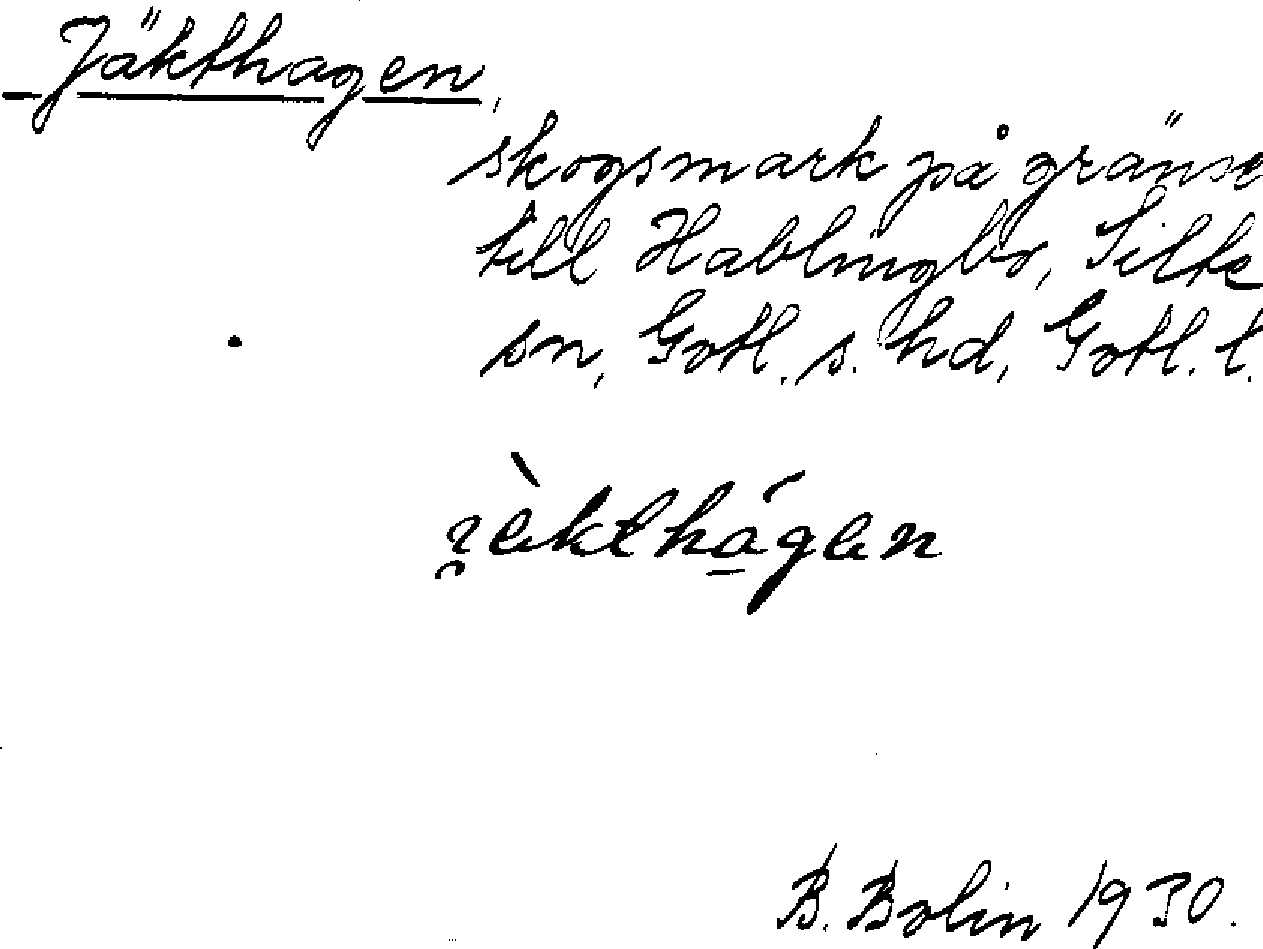 Jäkthagen,
skogsmark på gränse
till Hablingbo, Silte
sn, Gotl. s. hd, Gotl. l.
B. Bolin 1930.